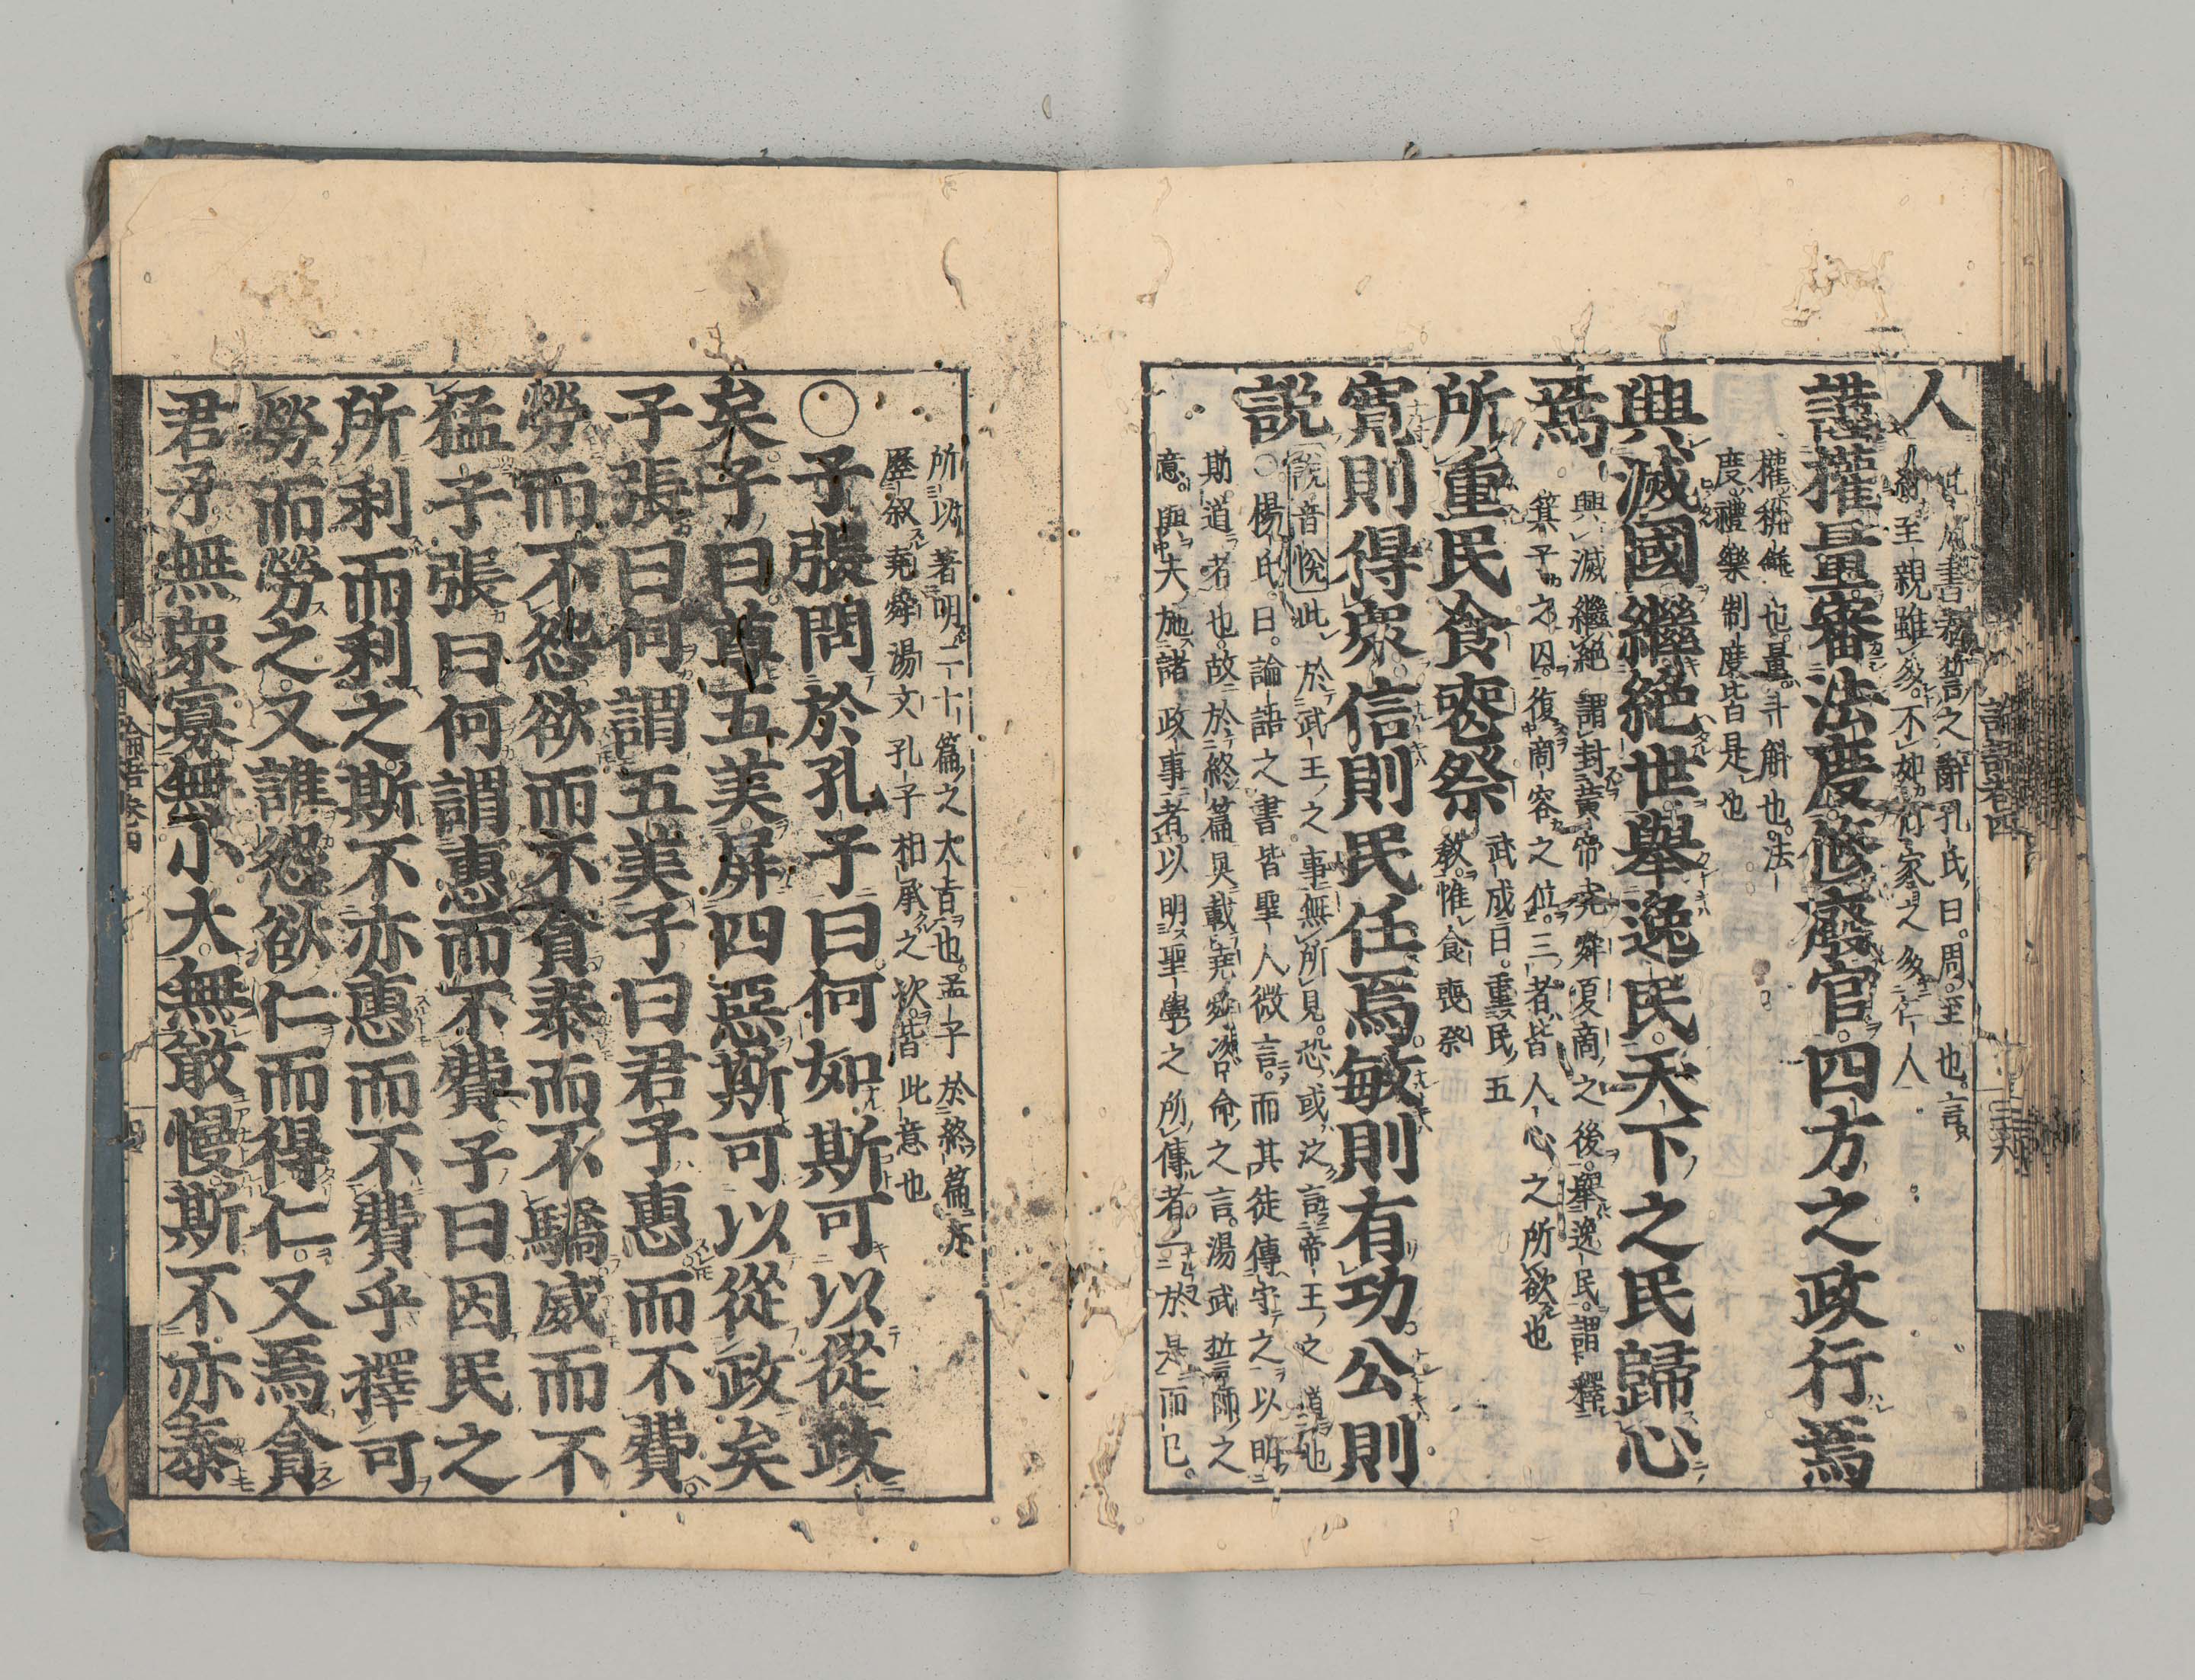 人
此周書泰誓之辭孔氏曰周至也言
紂至親雖多不如周家之多仁人
謹權量審法度修廢官四方之政行焉
權稱錘也量斗斛也法
度禮樂制度皆是也
興滅國繼絕世舉逸民天下之民歸心
焉
興滅繼絕謂封黃帝堯舜夏商之後舉逸民謂釋
箕子之囚復商容之位三者皆人心之所欲也
所重民食喪祭
武成曰重民五
教惟食喪祭
寬則得衆信則民任焉敏則有功公則
說
說音悅此於武王之事無所見恐或泛言帝王之道也
○楊氏曰論語之書皆聖人微言而其徒傳守之以明
斯道者也故於終篇具載堯舜咨命之言湯武誓師之
意與夫施諸政事者以明聖學之所傳者一於是而已
論語卷四
所以著明二十篇之大旨也孟子於終篇亦
歷叙堯舜湯文孔子相承之次皆此意也
○子張問於孔子曰何如斯可以從政
矣子曰尊五美屏四惡斯可以從政矣
子張曰何謂五美子曰君子惠而不費
勞而不怨欲而不貪泰而不驕威而不
猛子張曰何謂惠而不費子曰因民之
所利而利之斯不亦惠而不費乎擇可
勞而勞之又誰怨欲仁而得仁又焉貪
君子無衆寡無小大無敢慢斯不亦泰
論語卷四